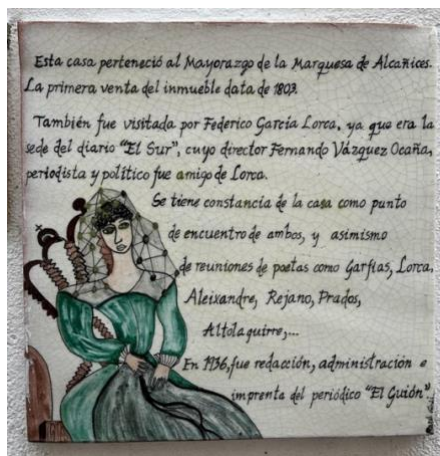 Esta casa perteneció al Mayorazgo de la Marquesa de Alcañices.
La primera venta del inmueble data de 1803.
También fue visitada por Federico García Lorca, ya que era la
sede del diario "El Sur", cuyo director Fernando Vázquez Ocaña,
periodista y político fue amigo de Lorca.
Se tiene constancia de la casa como punto
de encuentro de ambos, y asimismo
de reuniones de poetas como Garfias, Lorca,
Aleixandre, Rejano, Prados,
Altolaguirre,...
En 1936, fue redacción, administración e
imprenta del periódico "El Guión"